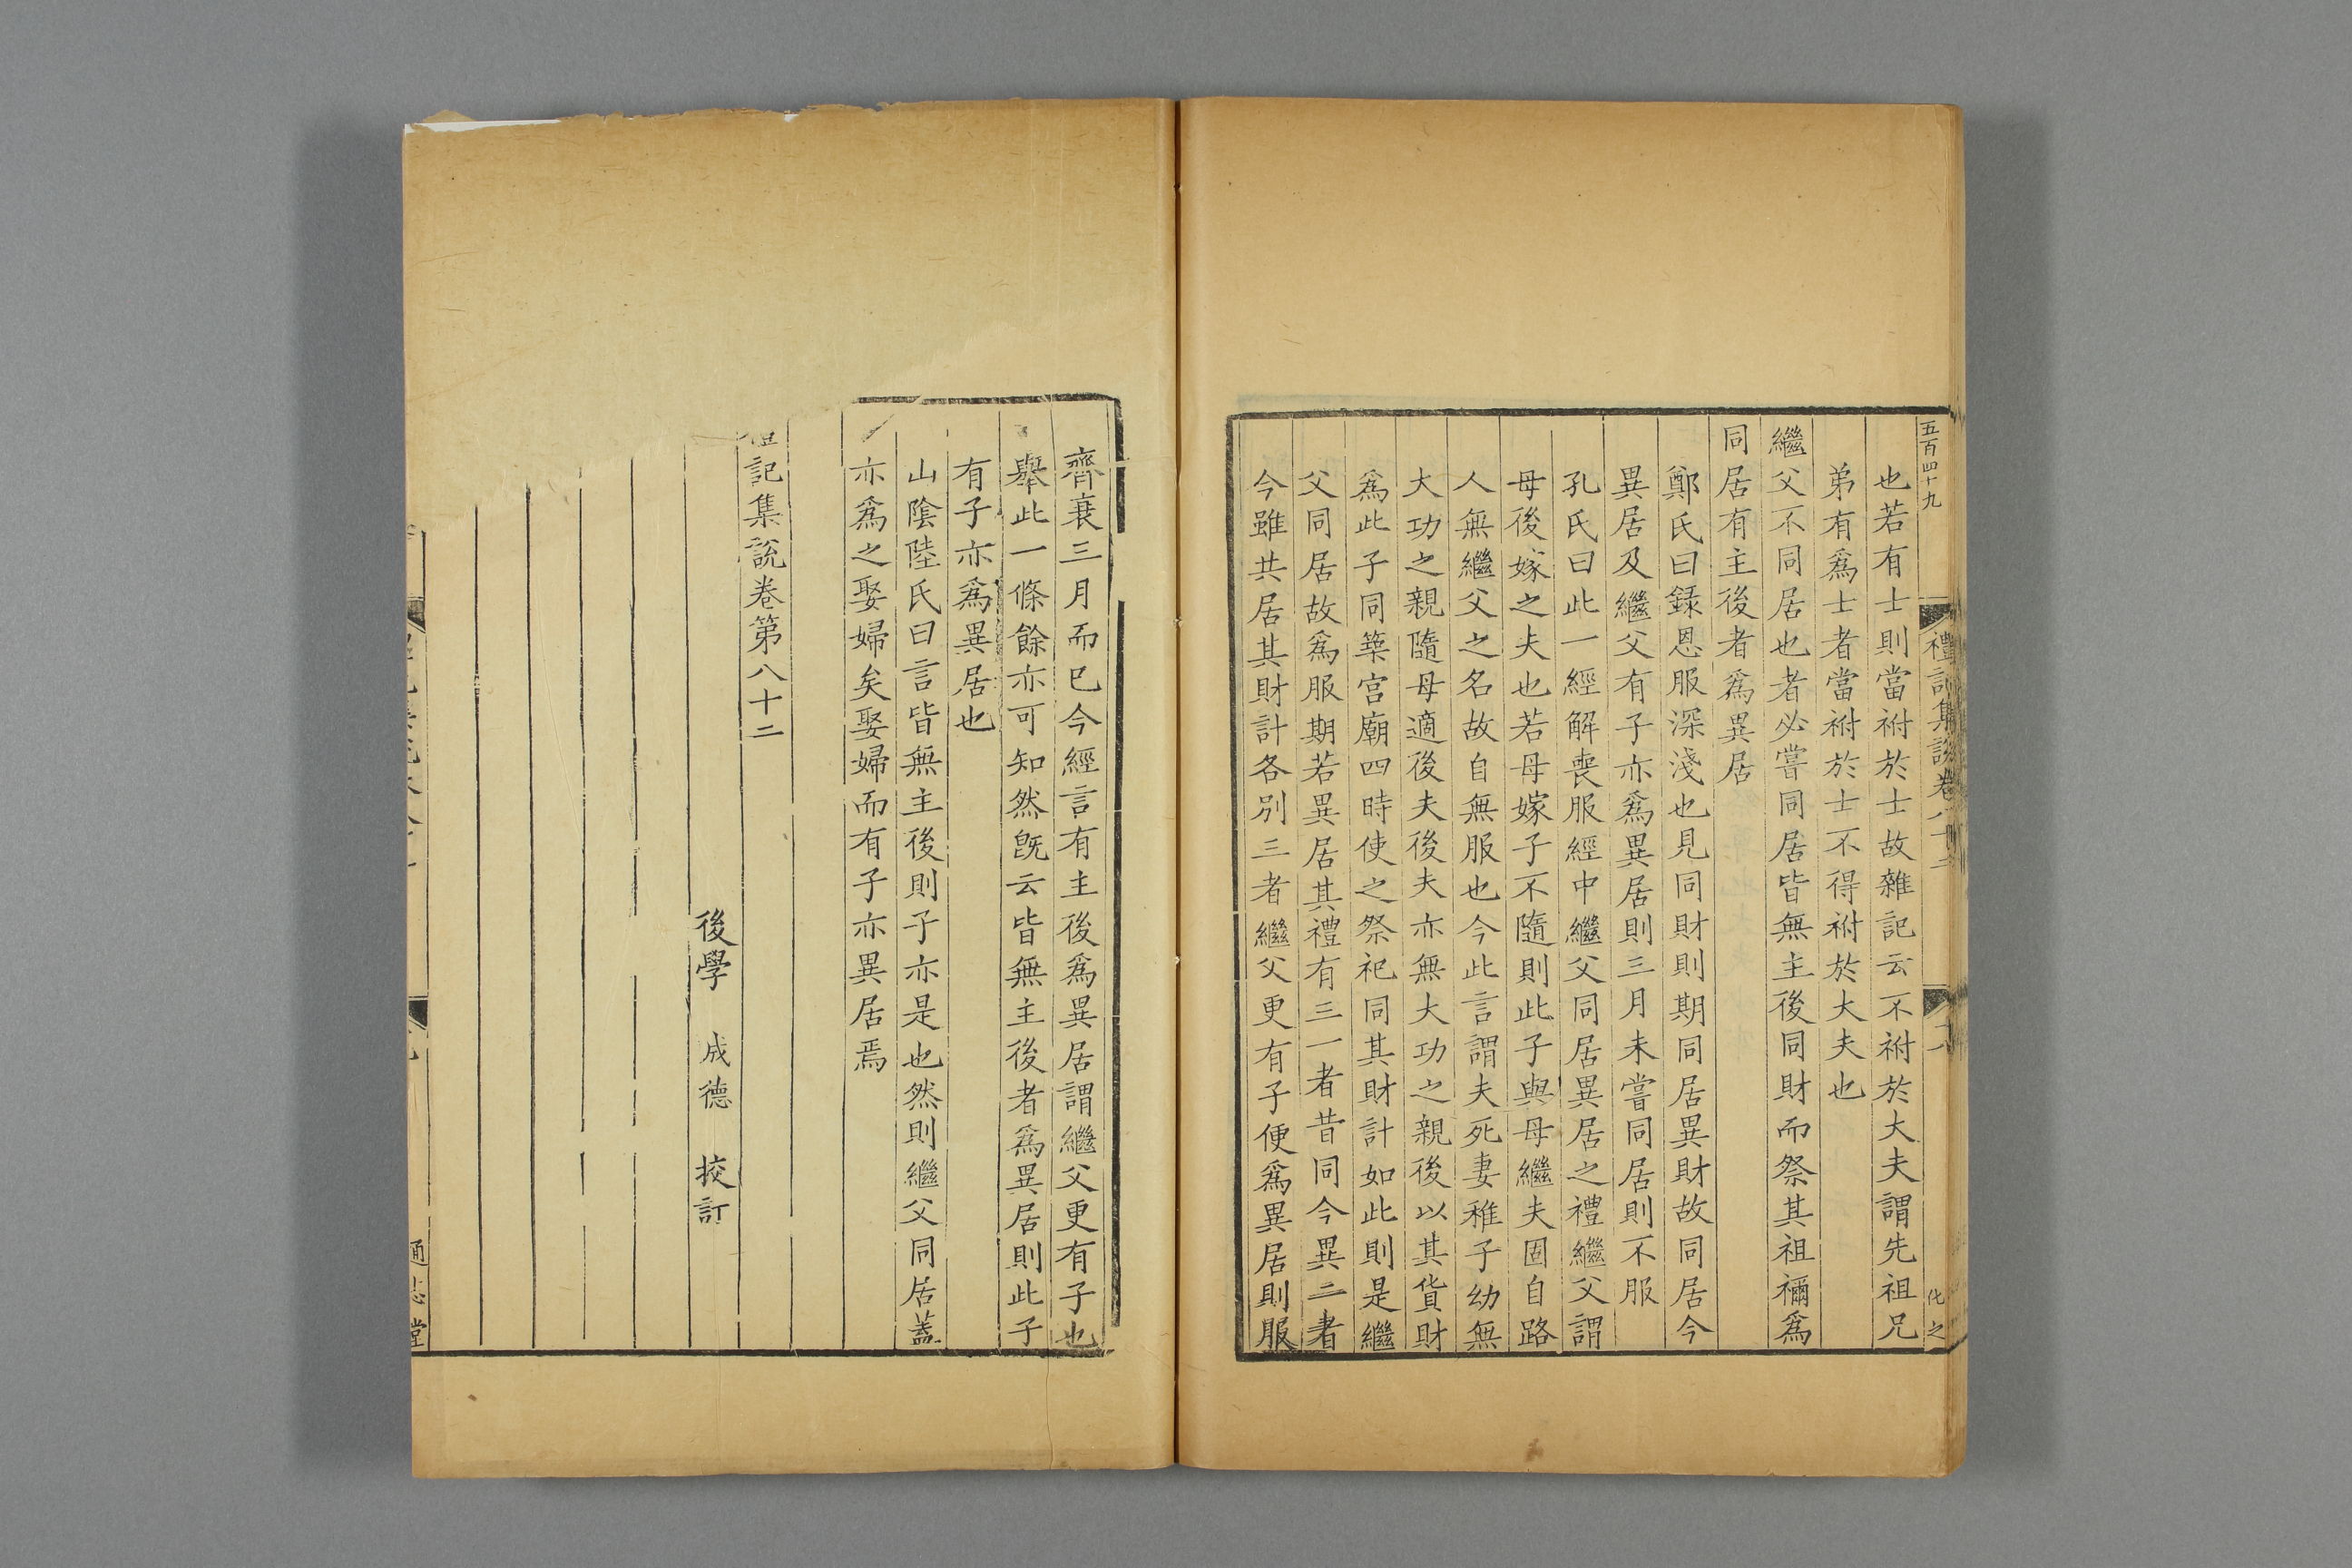 五百四十九
禮記集說卷八十二
化之
也若有士則當祔於士故雜記云不祔於大夫謂先祖兄
弟有爲士者當祔於士不得祔於大夫也
繼父不同居也者必嘗同居皆無主後同財而祭其祖禰爲
同居有主後者爲異居
鄭氏曰録恩服深淺也見同財則期同居異財故同居今
異居及繼父有子亦爲異居則三月未嘗同居則不服
孔氏曰此一經解喪服經中繼父同居異居之禮繼父謂
母後嫁之夫也若母嫁子不隨則此子與母繼夫固自路
人無繼父之名故自無服也今此言謂夫死妻稚子幼無
大功之親隨母適後夫後夫亦無大功之親後以其貨財
爲此子同築宫廟四時使之祭祀同其財計如此則是繼
父同居故爲服期若異居其禮有三一者昔同今異二者
今雖共居其財計各別三者繼父更有子便爲異居則服
齊衰三月而已今經言有主後爲異居謂繼父更有子也
舉此一條餘亦可知然旣云皆無主後者爲異居則此子
有子亦爲異居也
山陰陸氏曰言皆無主後則子亦是也然則繼父同居蓋
亦爲之娶婦矣娶婦而有子亦異居焉
記集說卷第八十二
後學 成德 挍訂
通志堂